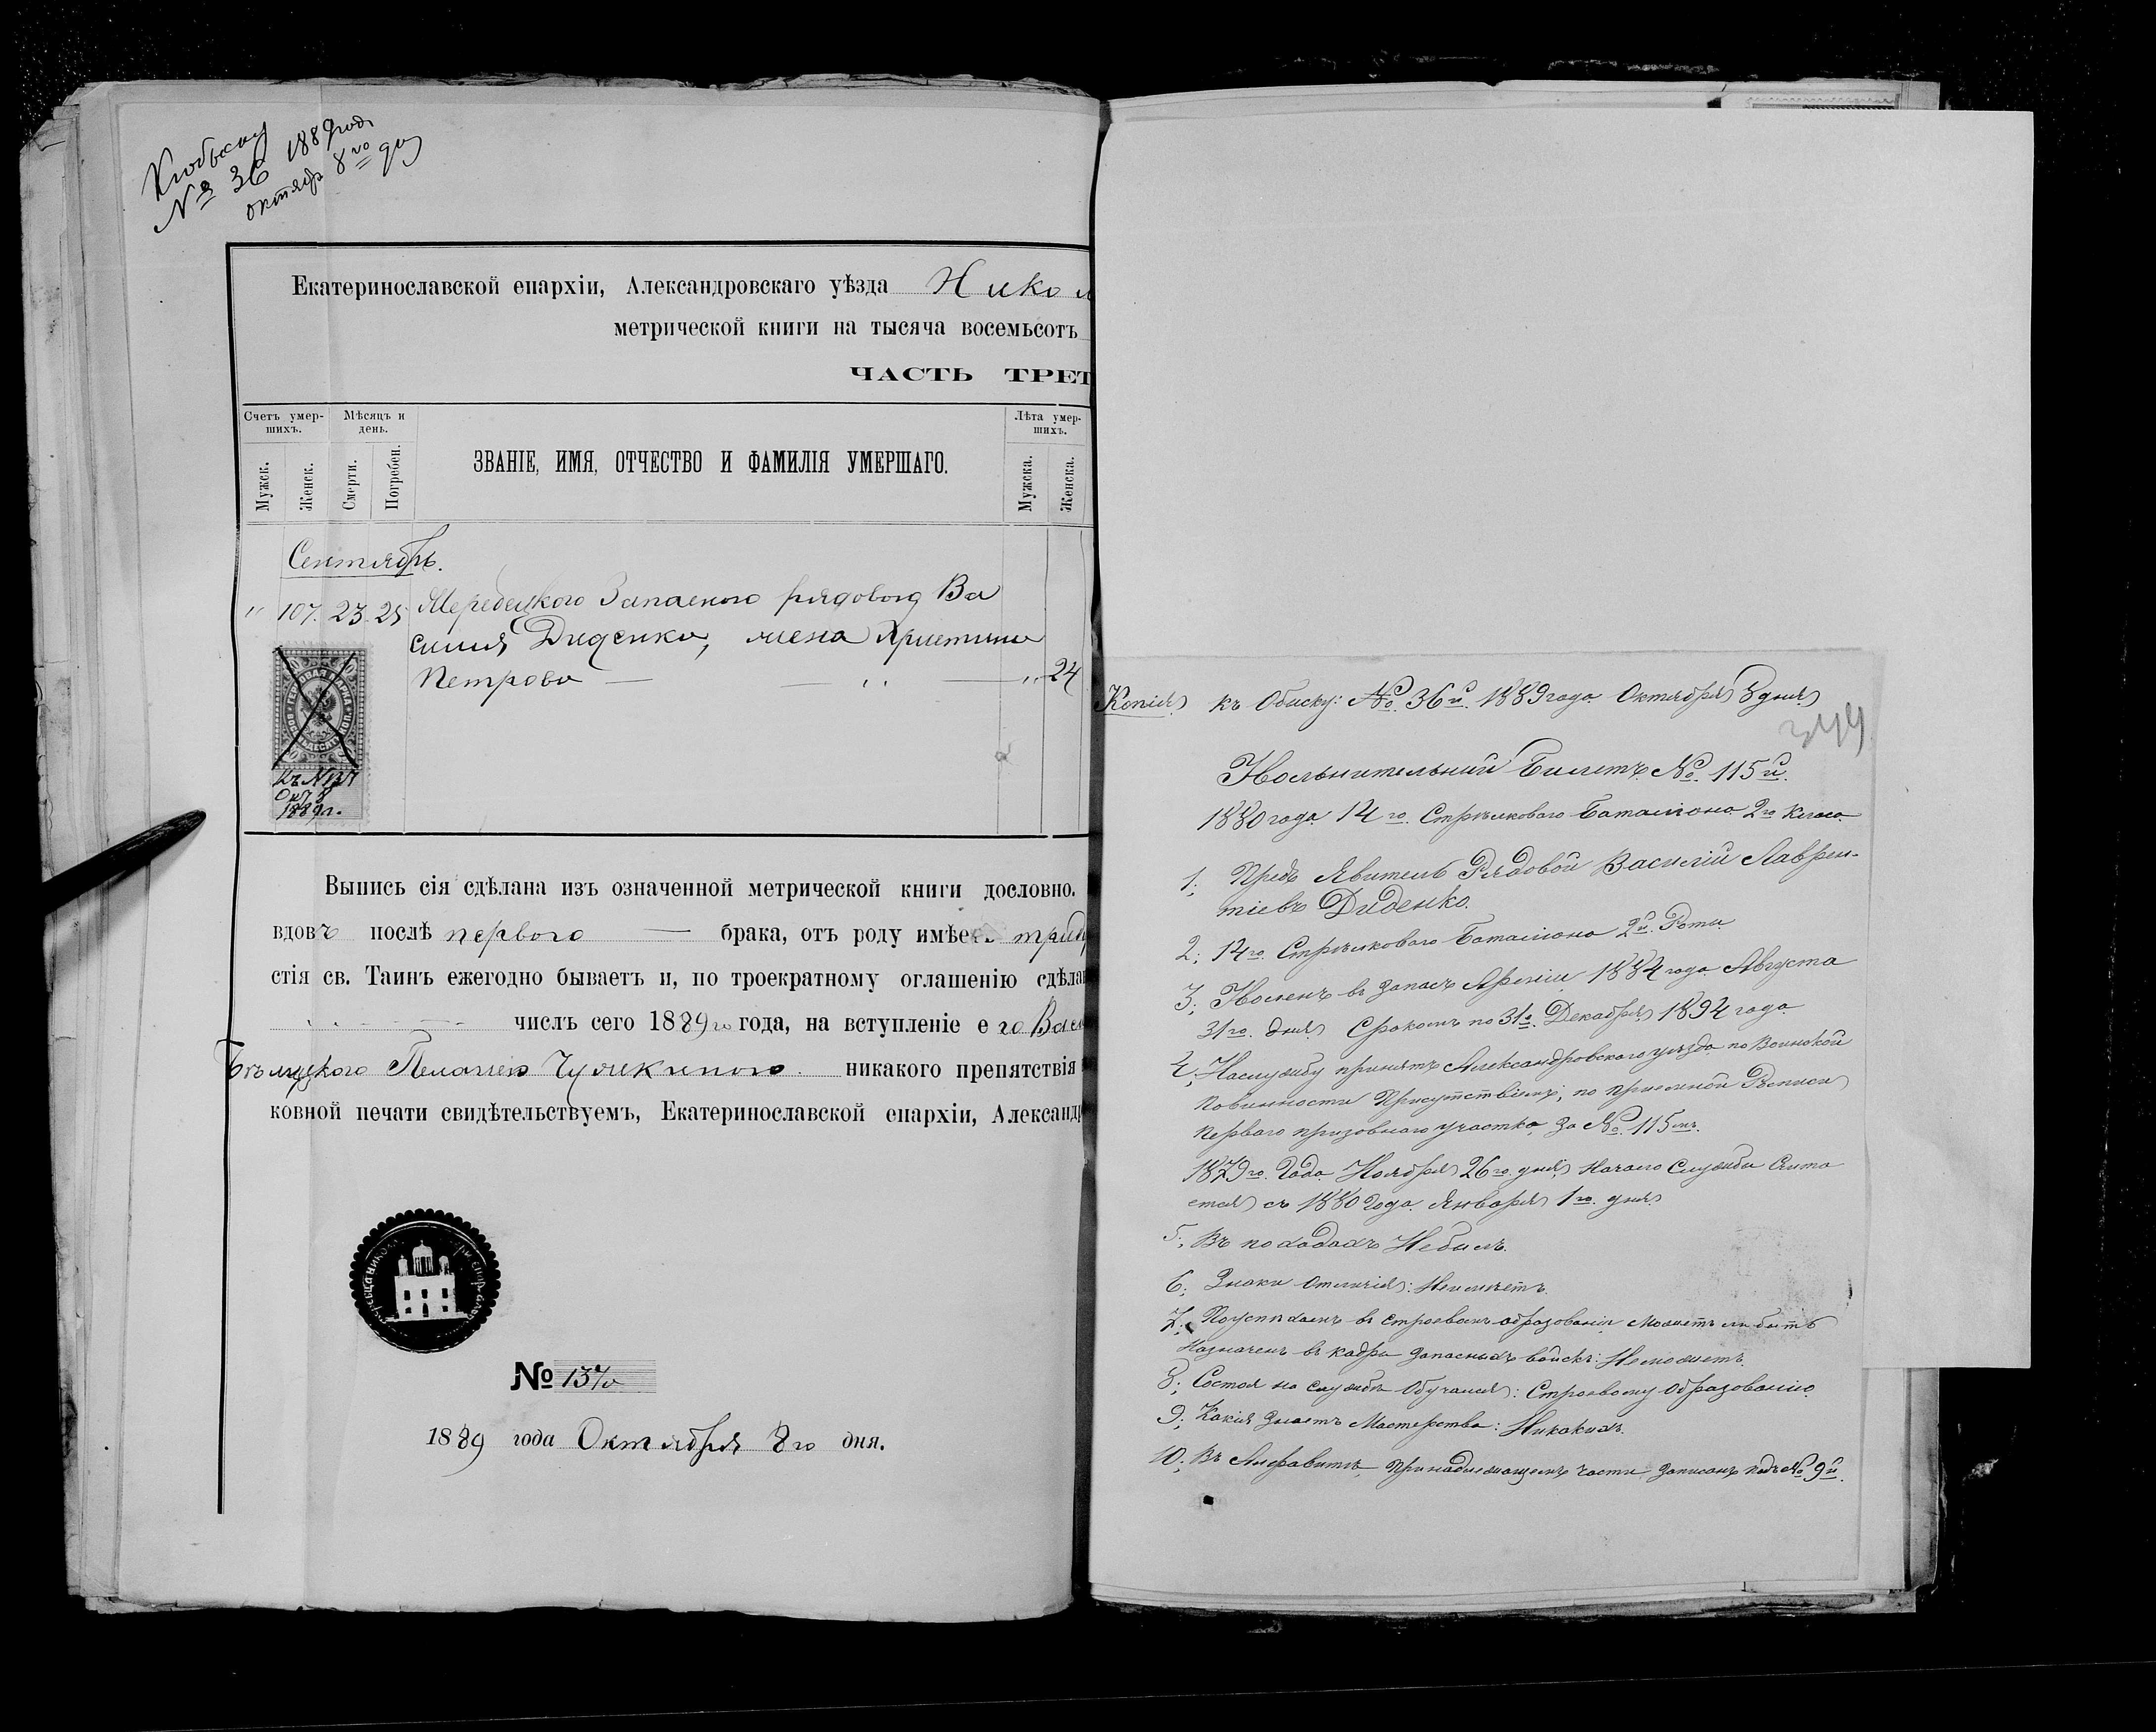 Къ обыску
№ 36 1889 года
октября 8го дня
Екатеринославской епархіи, Александровскаго уѣзда Никол
метрической книги на тысяча восемьсотъ
ЧАСТЬ ТРЕТ
Счетъ умер-
шихъ.
Мужск.
Женск.
Мѣсяцъ и
день.
Смерти.
Погребен.
ЗВАНІЕ, ИМЯ, ОТЧЕСТВО И ФАМИЛІЯ УМЕРШАГО.
Лѣта умер-
шихъ.
Мужска.
Женска.
Сентябрь.
" 107. 23. 25 Запасного рядового Ва
силія Диденко, жена Христина
Петрова — — " — " 24
ГЕРБОВАЯ МАРКА
Къ № 137
Окт 8
1889 г.
Выпись сія сдѣлана изъ означенной метрической книги дословно.
вдовъ послѣ первого — брака, отъ роду имѣетъ тридц
стія св. Таинъ ежегодно бываетъ и, по троекратному оглашенію сдѣлан
числъ сего 1889го года, на вступленіе его Васи
Пелагею никакого препятствія
ковной печати свидѣтельствуемъ, Екатеринославской епархіи, Александр
№ 137
1889 года Октября 8го дня.
Копія къ Обыску: №. 36й. 1889 года Октября 8 дня
344
Увольнительный Билетъ №. 115й.
1880 года 14го. Стрѣлковаго Баталіона 2го
1; Предъявитель Рядовой Василій Лаврен-
тіевъ Диденко.
2; 14го. Стрѣлковаго Баталіона 2й. Роты.
3; Уволенъ въ запасъ Арміи 1884 года Августа
31го. дня Срокомъ по 31е. Декабря 1894 года
4; На службу принятъ Александровскаго уѣзда по Воинской
Повинности Присутствіемъ, по пріемной Росписи
перваго призывнаго участка, за №. 115мъ.
1879го. Года Ноября 26го. дня, Начало Службы Счита
ется съ 1880 Года Января 1го. дня
5; Въ походахъ Небылъ.
6; Знаки Отличія: Неимѣетъ.
7; По успѣхамъ въ строевомъ образованіи можетъ ли быть
назначенъ въ кадры запасныхъ войскъ: Неможетъ.
8; Состоя на службѣ Обучался: Строевому Образованію.
9; Какія знаетъ Мастерства: Никакихъ.
10; Въ Алфавитѣ, принадлежащемъ части записанъ подъ № 9й.